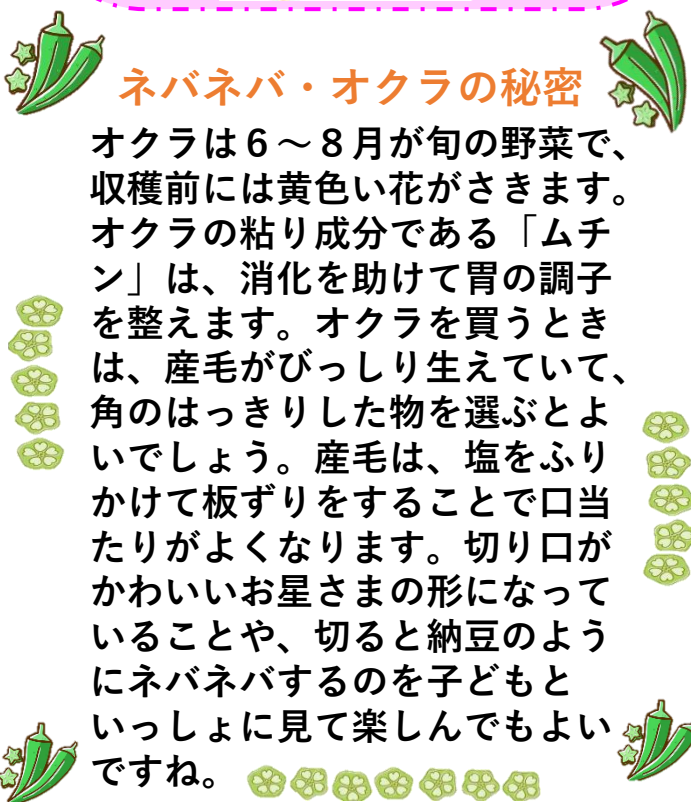 ネバネバ・オクラの秘密
オクラは６～８月が旬の野菜で、
収穫前には黄色い花がさきます。
オクラの粘り成分である「ムチ
ン」は、消化を助けて胃の調子
を整えます。オクラを買うとき
は、産毛がびっしり生えていて、
角のはっきりした物を選ぶとよ
いでしょう。産毛は、塩をふり
かけて板ずりをすることで口当
たりがよくなります。切り口が
かわいいお星さまの形になって
いることや、切ると納豆のよう
にネバネバするのを子どもと
いっしょに見て楽しんでもよい
ですね。